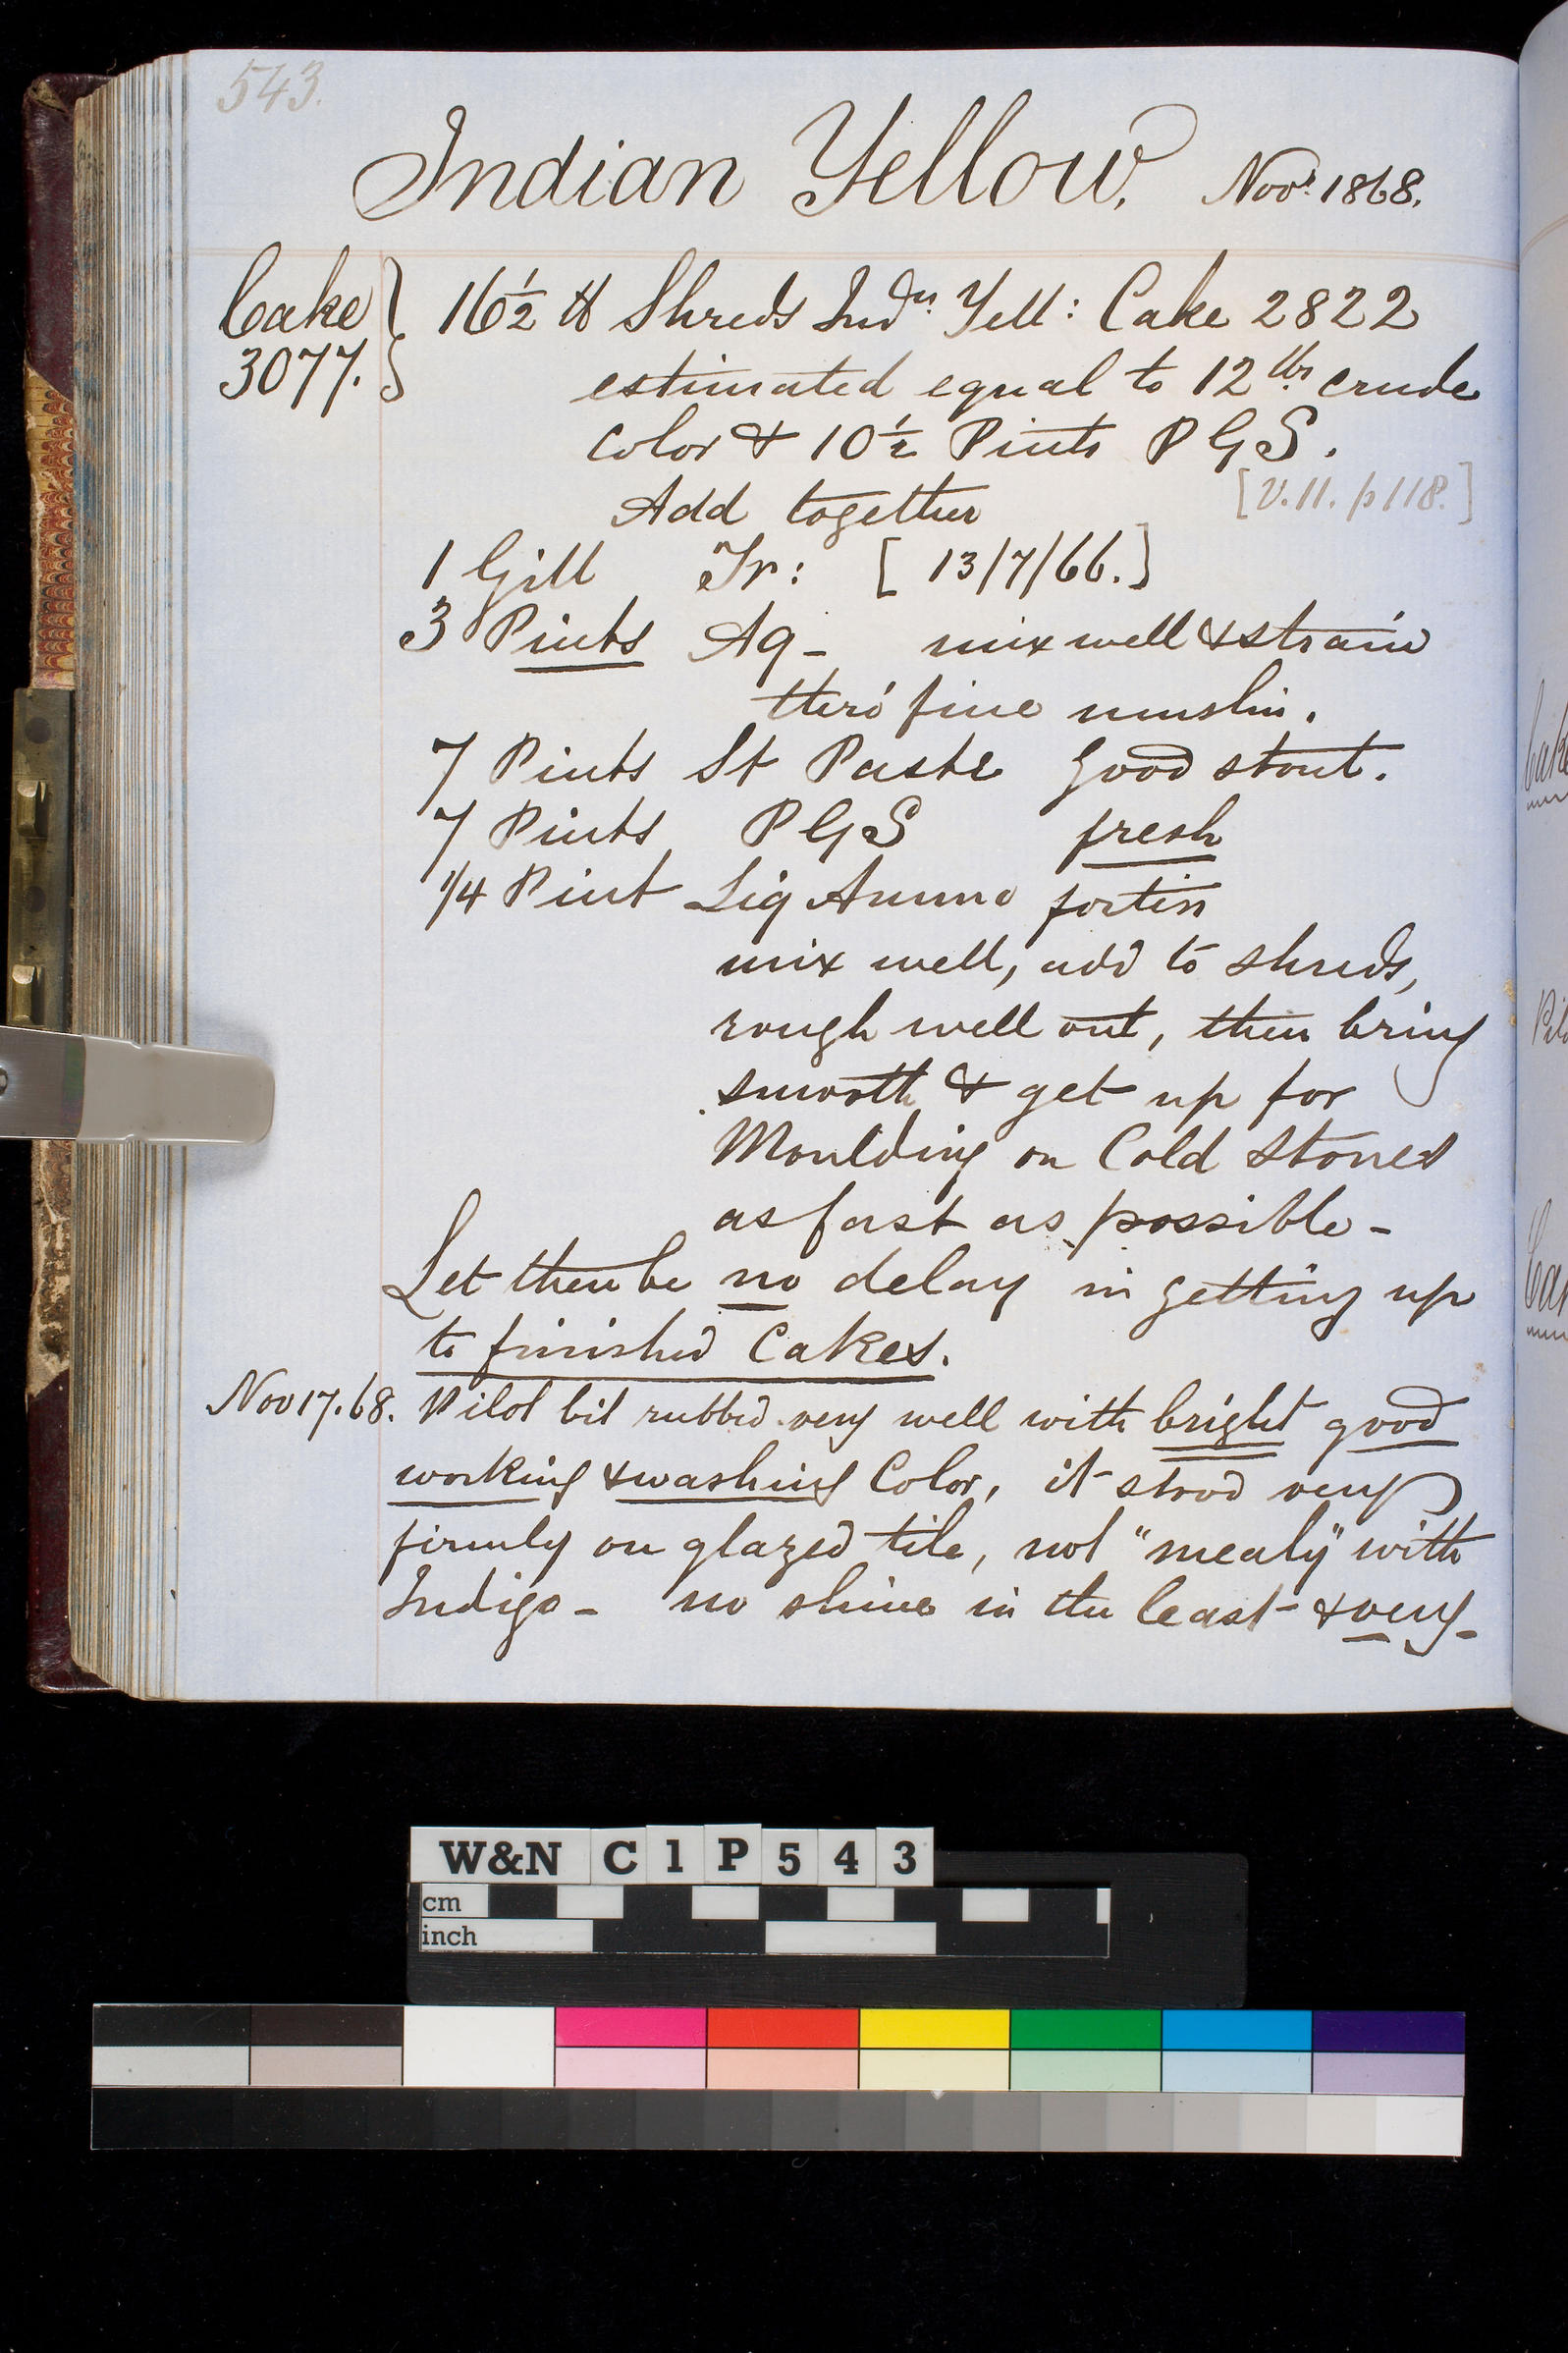 543.
Indian Yellow. Novr. 1868.
Cake 3077. } 16½ ℔ Shreds Indn. Yell: Cake 2822
estimated equal to 12 lbs. crude
color & 10½ Pints P G S.
[V. 11. p 118.]
Add together
1 Gill Tr: [ 13/7/66.]
3 Pints Aq - mix well & strain
thro' fine muslin.
7 Pints St Paste good stout.
7 Pints P G S fresh
1/4 Pint Liq Ammo fortis
mix well, add to shreds,
rough well out, then bring
smooth & get up for
Moulding on Cold Stones
as fast as possible -
Let there be no delay in getting up
to finished Cakes.
Nov 17. 68. Pilot bit rubbed very well with bright good
working & washing Color, it stood very
firmly on glazed tile, not "mealy" with
Indigo - no shine in the least & very -
W&N C 1 P 5 4 3
cm
inch